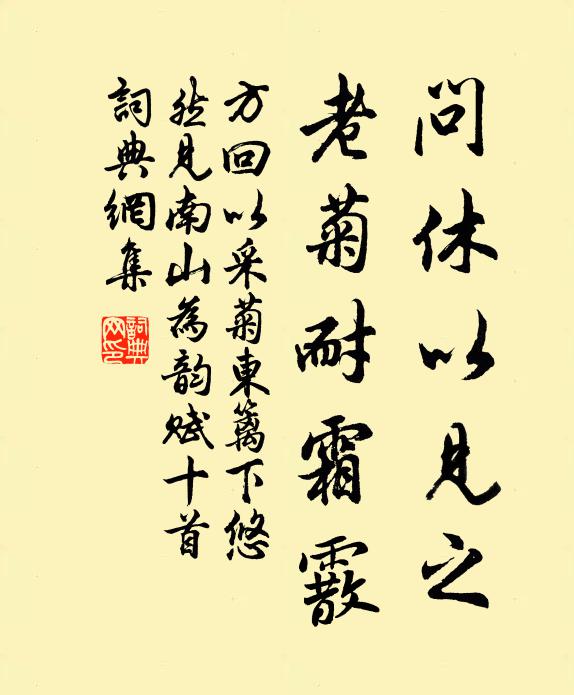 問休以見之
老菊耐霜霰
方回以采菊東籬下悠
然見南山為韵賦十首
詞典網集
詞典网印